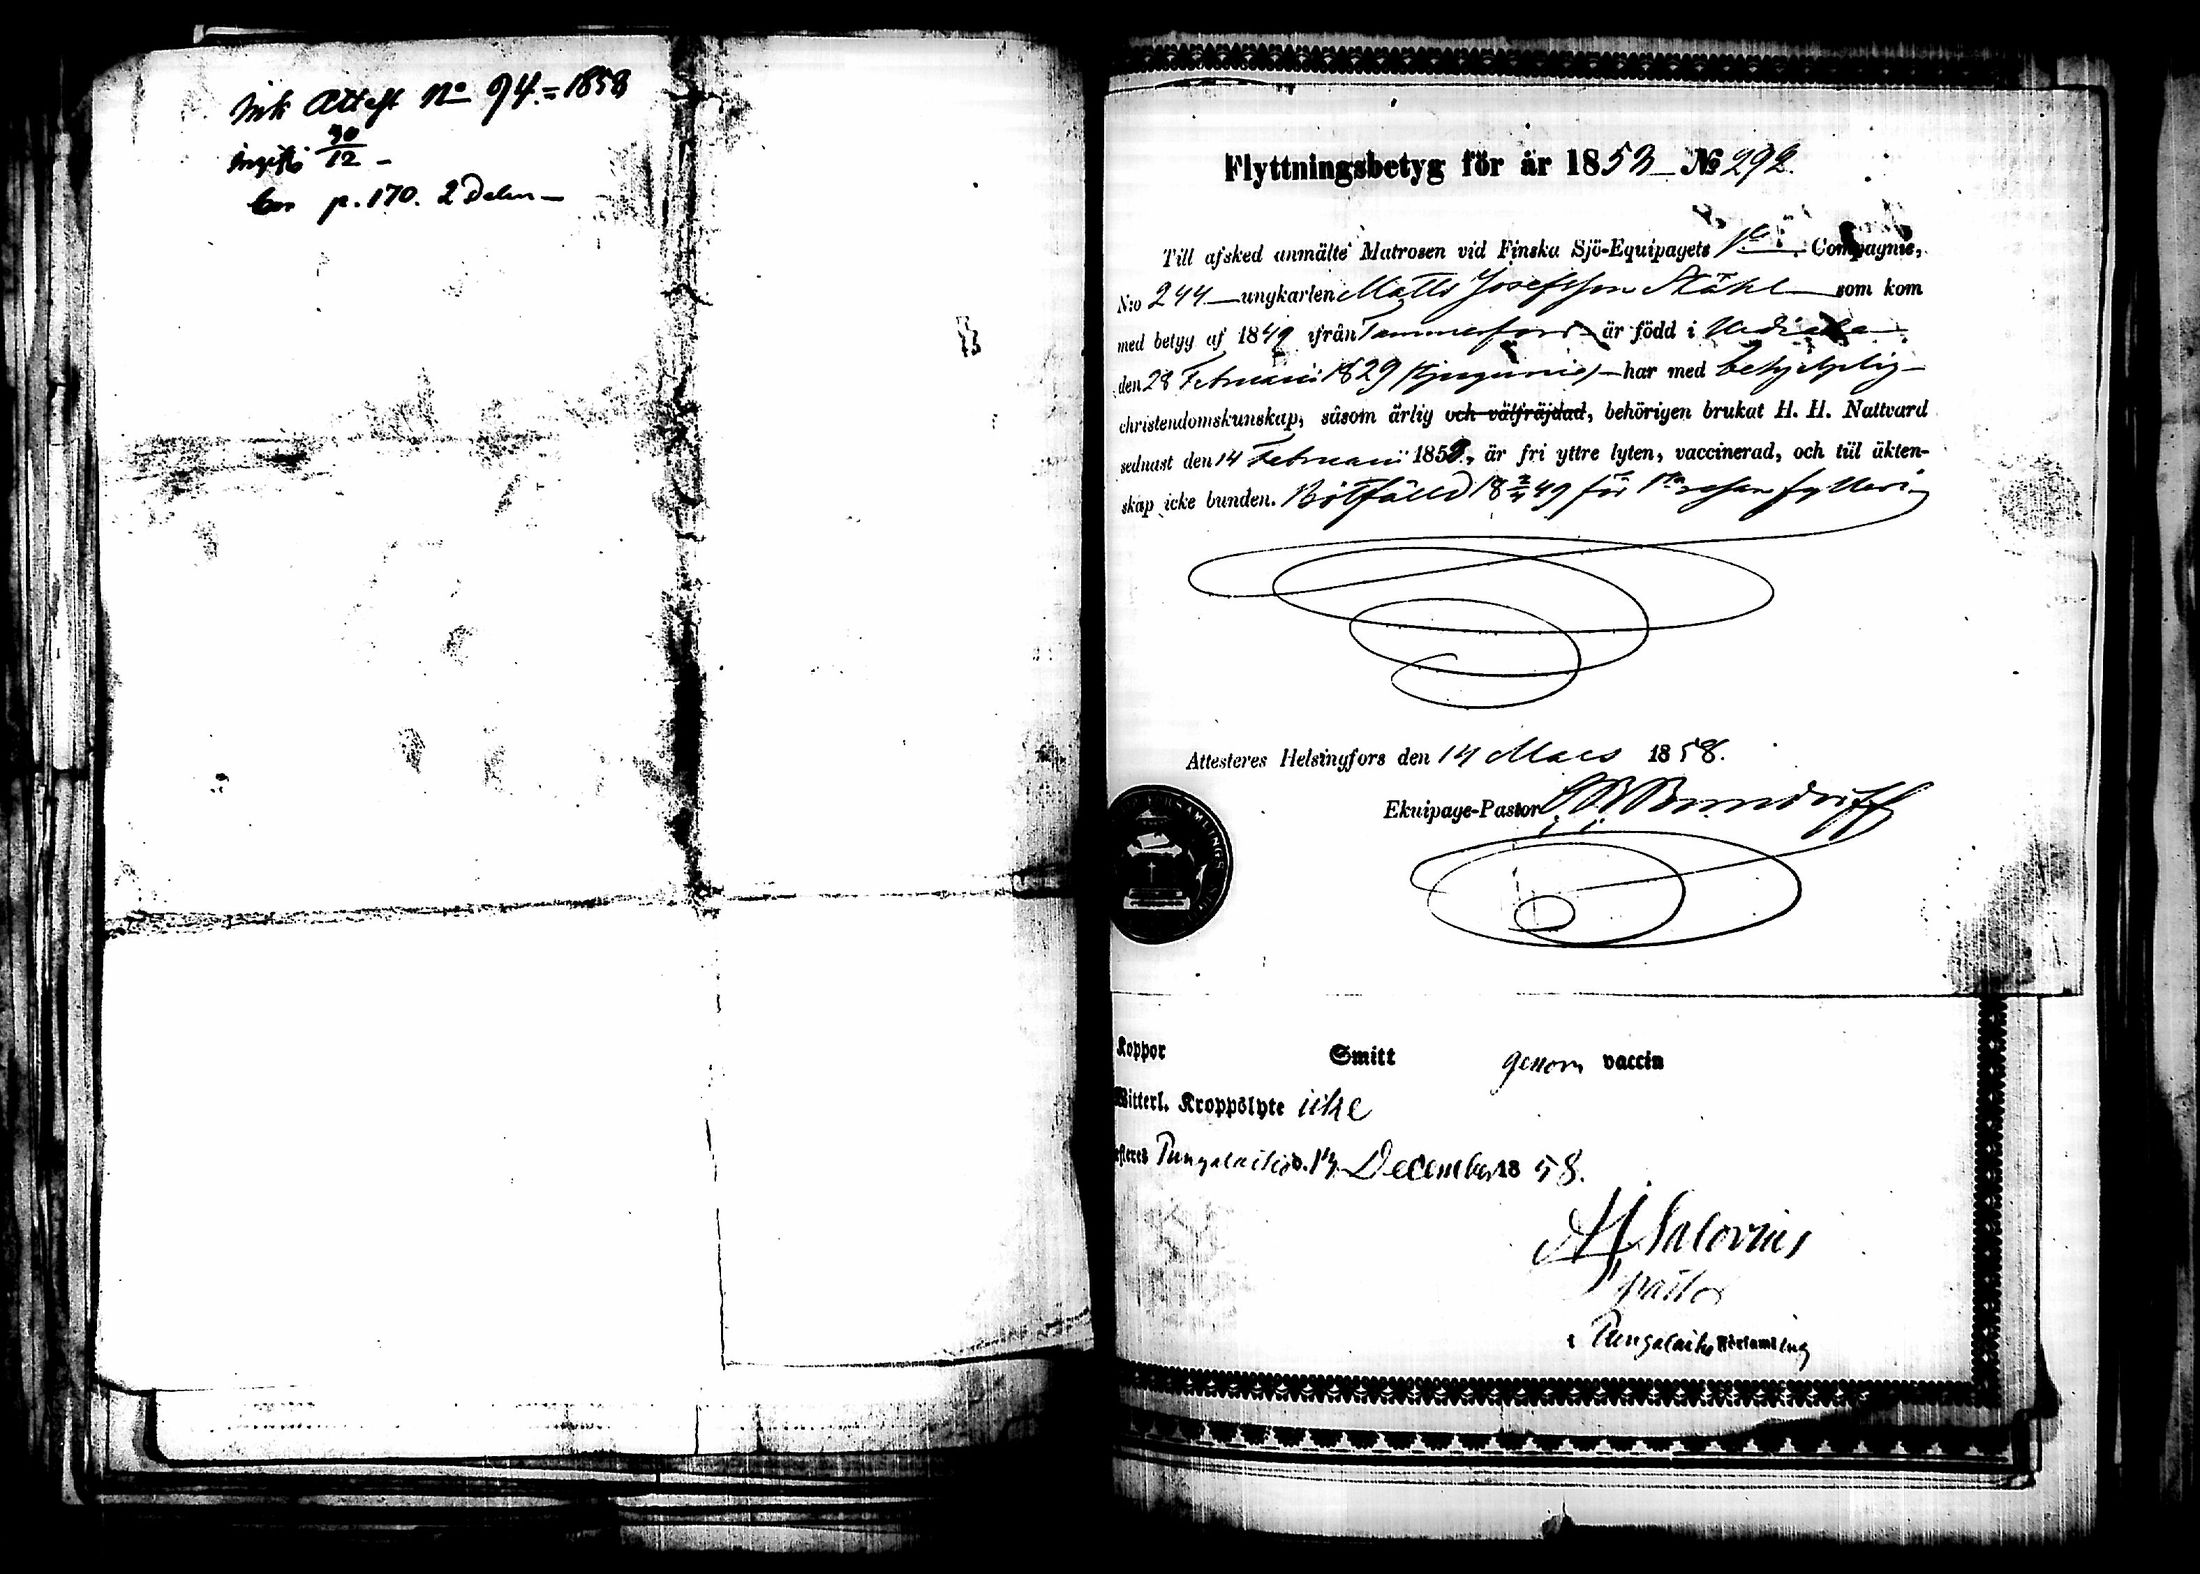 Ink Attest No 94. = 1858
30/12 -
p. 170. 2 Delen -
Flyttningsbetyg för år 1858 - No 292.
Till afsked anmälte Matrosen vid Finska Sjö-Equipagets 1sta Compagnie,
N:o 244 ungkarlen Matts Josefsson Ståhl som kom
med betyg af 1849 ifrån Tammerfors är född i
den 28 Februarii 1829 har med behjelplig
christendomskunskap, såsom ärlig och välfräjdad, behörigen brukat H. H. Nattvard
sednast den 14 Februarii 1858, är fri yttre lyten, vaccinerad, och till äkten-
skap icke bunden. Bötfälld 18 49 för 1sta resan fylleri
Attesteres Helsingfors den 14 Mars 1858.
Ekuipage-Pastor
Koppor Smitt genom vaccin
Witterl. Kroppslyte icke
Pungalaitio d. 13 December 1858.
Salovius
pastor
i Pungalaitio Församling